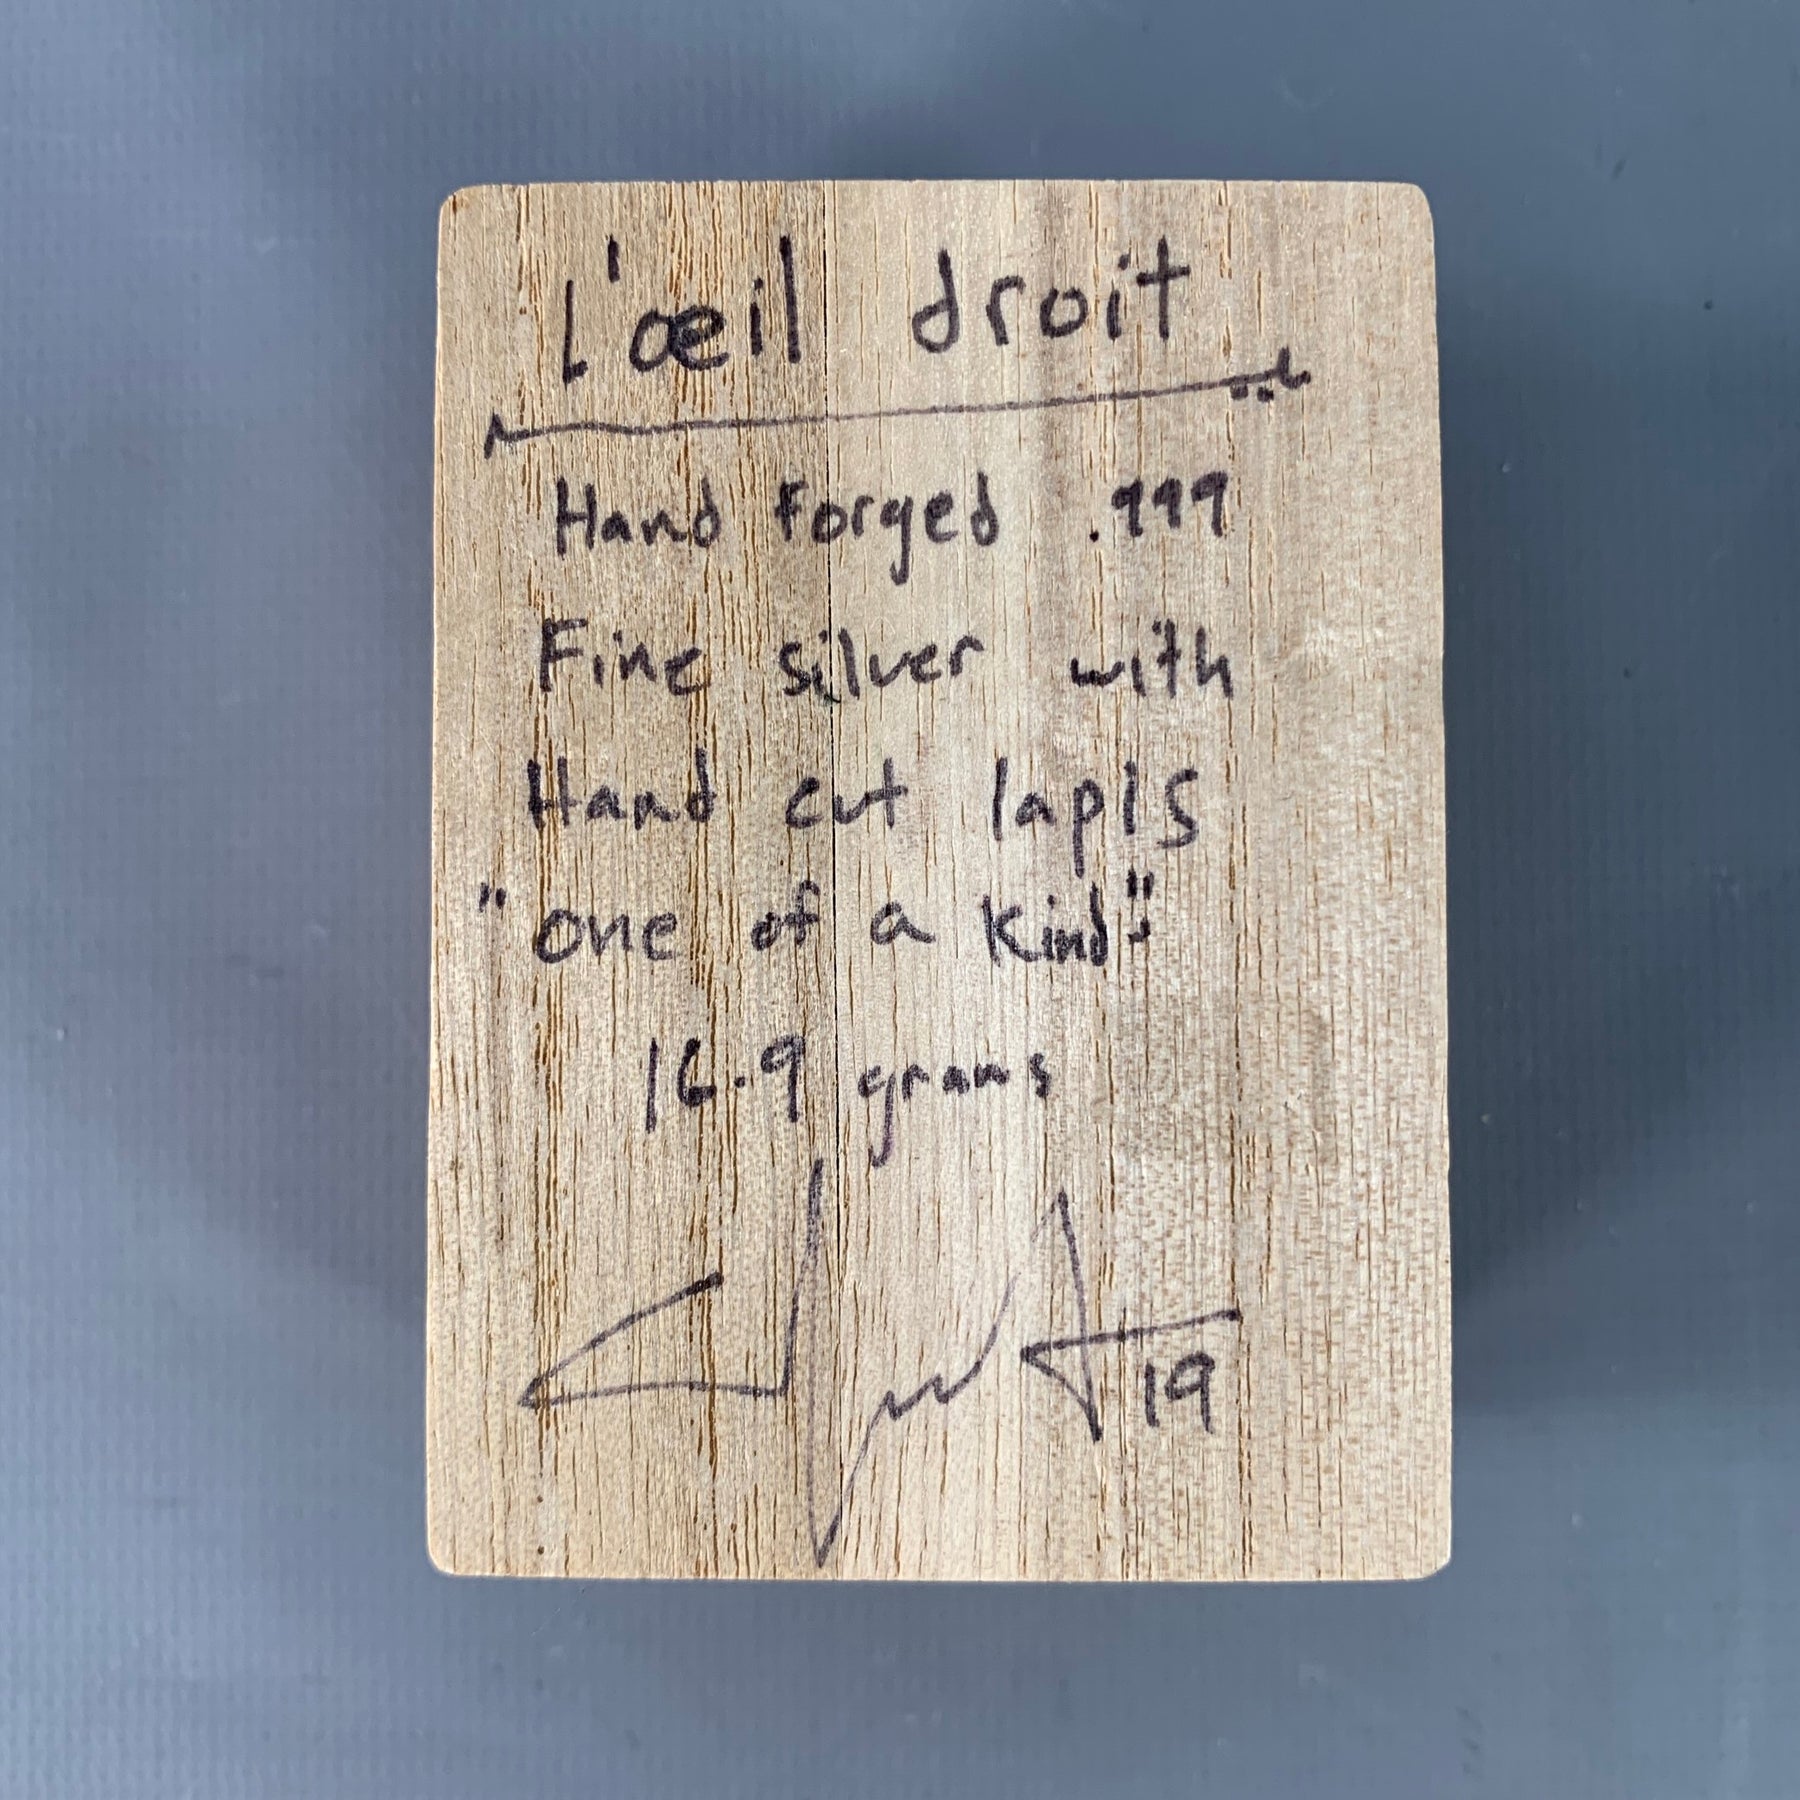 L'œil droit
Hand forged .999
Fine silver with
Hand cut lapis
"one of a kind"
16.9 grams
19